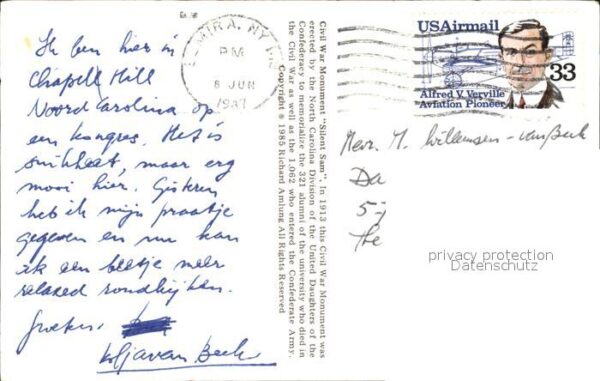 Ik ben hier in
Chapell Hill
Noord Carolina op
een kongres. Het is
snikheet, maar erg
mooi hier. Gisteren
heb ik mijn praatje
gegeven en nu kan
ik een beetje meer
relaxed rondkijken.
Groeten,
van Beek
MIRA, NY
PM
8 JUN
Civil War Monument "Silent Sam". In 1913 this Civil War Monument was
erected by the North Carolina Division of the United Daughters of the
Confederacy to memorialize the 321 alumni of the university who died in
the Civil War as well as the 1,062 who entered the Confederate Army.
Copyright © 1985 Richard Amlung All Rights Reserved
USAirmail
33
Alfred V. Verville
Aviation Pioneer
Mevr. M. Willemsen-van Beek
Da
5
The
privacy protection
Datenschutz